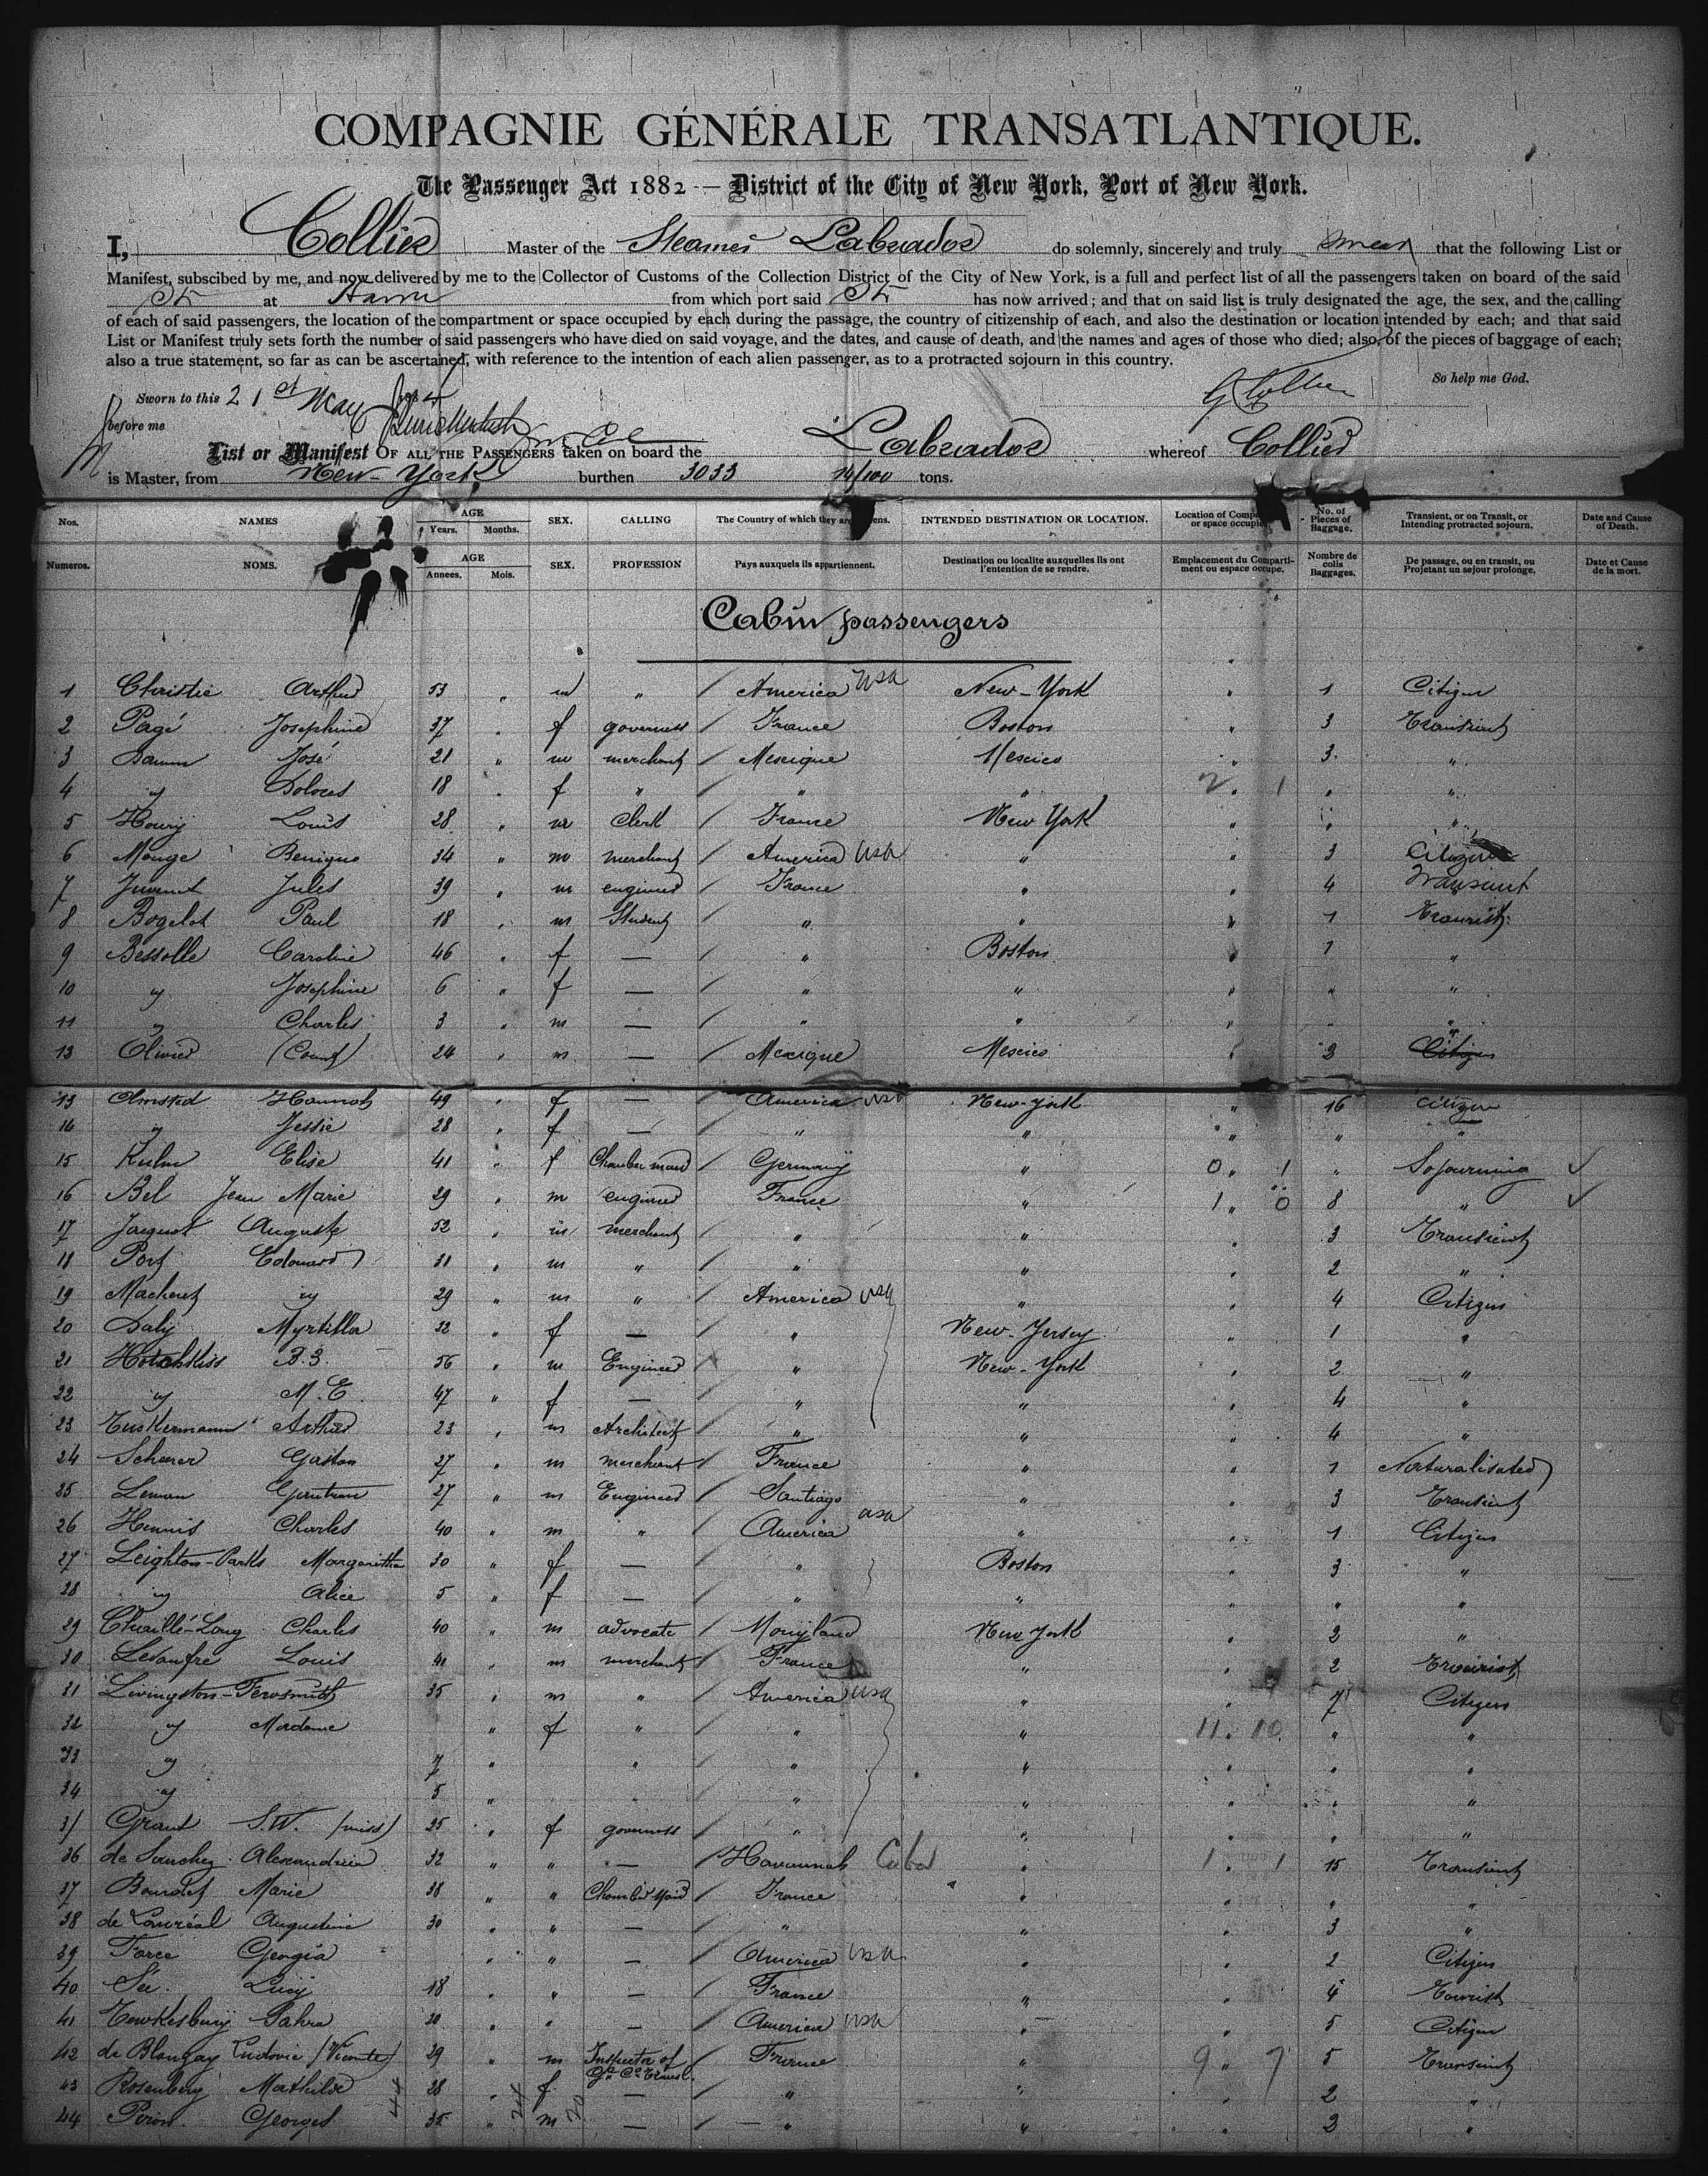 COMPAGNIE GÉNÉRALE TRANSATLANTIQUE.
The Passenger Act 1882 — District of the City of New York, Port of New York.
I, Collier Master of the Steamer Labrador do solemnly, sincerely and truly swear that the following List or
Manifest, subscibed by me, and now delivered by me to the Collector of Customs of the Collection District of the City of New York, is a full and perfect list of all the passengers taken on board of the said
Str at Havre from which port said Str has now arrived; and that on said list is truly designated the age, the sex, and the calling
of each of said passengers, the location of the compartment or space occupied by each during the passage, the country of citizenship of each, and also the destination or location intended by each; and that said
List or Manifest truly sets forth the number of said passengers who have died on said voyage, and the dates, and cause of death, and the names and ages of those who died; also, of the pieces of baggage of each;
also a true statement, so far as can be ascertained, with reference to the intention of each alien passenger, as to a protracted sojourn in this country.
So help me God.
Sworn to this 21st May
before me
G Collier
List or Manifest OF ALL THE PASSENGERS taken on board the Labrador whereof Collier
is Master, from New-York burthen 3033 14/100 tons.
Nos. NAMES AGE Years. Months. SEX. CALLING The Country of which they are INTENDED DESTINATION OR LOCATION. Location of or space No. of Pieces of Baggage. Transient, or on Transit, or Intending protracted sojourn. Date and Cause of Death.
Numeros. NOMS. AGE Annees. Mois. SEX. PROFESSION Pays auxquels ils appartiennent. Destination ou localite auxquelles ils ont l'entention de se rendre. Emplacement du Compartiment ou espace occupe. Nombre de colis Baggages. De passage, ou en transit, ou Projetant un sejour prolonge. Date et Cause de la mort.
Cabin passengers
1 Christie Arthur 53 " m " / America USA New-York " 1 Citizen
2 Pagé Josephine 37 " f governess / France Boston " 3 Transient
3 José 21 " m merchant / Mexique Mexico " 3 "
4 " Dolores 18 " f " / " " 2 " 1 " "
5 Louis 28 " m Clerk / France New York " " "
6 Monge Benigno 34 " m merchant / America USA " " 3 Citizen
7 Jules 39 " m engineer / France " " 4 Transient
8 Bogelot Paul 18 " m Student / " " " 1 Tourist
9 Bessolle Caroline 46 " f — / " Boston " 1 "
10 " Josephine 6 " f — / " " " " "
11 " Charles 3 " m — / " " " " "
13 Olivier (Count) 24 " m — / Mexique Mexico " 2 Citizen
13 Olmsted Hannah 49 " f — / America USA New-York " 16 Citizen
14 " Jessie 28 " f — / " " " " "
15 Kuhn Elise 41 " f Chamber maid / Germany " 0 " 1 " Sojourning ✓
16 Bel Jean Marie 29 " m engineer / France " 1 " 0 8 " ✓
17 Jacquot Auguste 52 " m merchant / " " " 3 Transient
18 Port Edouard 31 " m " / " " " 2 "
19 29 " m " / America USA " " 4 Citizen
20 Daly Myrtilla 32 " f — / " New-Jersey " 1 "
21 Hotchkiss B.B. 56 " m Engineer / " New-York " 2 "
22 " M.E. 47 " f — / " " " 4 "
23 Tuckermann Arthur 23 " m Architect / " " " 4 "
24 Scherer Gaston 27 " m merchant / France " " 1 Naturalisated
25 Leman 27 " m Engineer / Santiago " " 3 Transient
26 Hennis Charles 40 " m " / America USA " " 1 Citizen
27 Leighton-Parks Margarittha 30 " f — / " Boston " 3 "
28 " Alice 5 " f — / " " " " "
29 Chaillé-Long Charles 40 " m advocate / Maryland New York " 2 "
30 Louis 41 " m merchant / France " " 2 Tourist
31 Livingston- 35 " m " / America USA " " 7 Citizen
32 " Madame " f " / " " 11 " 10 " "
33 " 7 " " / " " " " "
34 " 5 " " / " " " " "
35 Grant S.W. (miss) 25 " f governess / " " " " "
36 de Sanchez Alexandrina 32 " " — / Havannah Cuba " 1 " 1 15 Transient
37 Bourdet Marie 38 " " Chamber Maid / France " " " "
38 de Augustine 30 " " — / " " " 3 "
39 Force Georgia " " — / America USA " " 2 Citizen
40 Sée Lucy 18 " " — / France " " 4 Tourist
41 Tewkesbury Sahra 30 " " — / America USA " " 5 Citizen
42 de Blangay Ludovic (Vicomte) 29 " m Inspector of Gle Ce Transl. / France " 9 " 7 5 Transient
43 Rosenberg Mathilde 28 " f — / " " " 2 "
44 Peron Georges 35 " m — / " " " 2 "
44 24 20